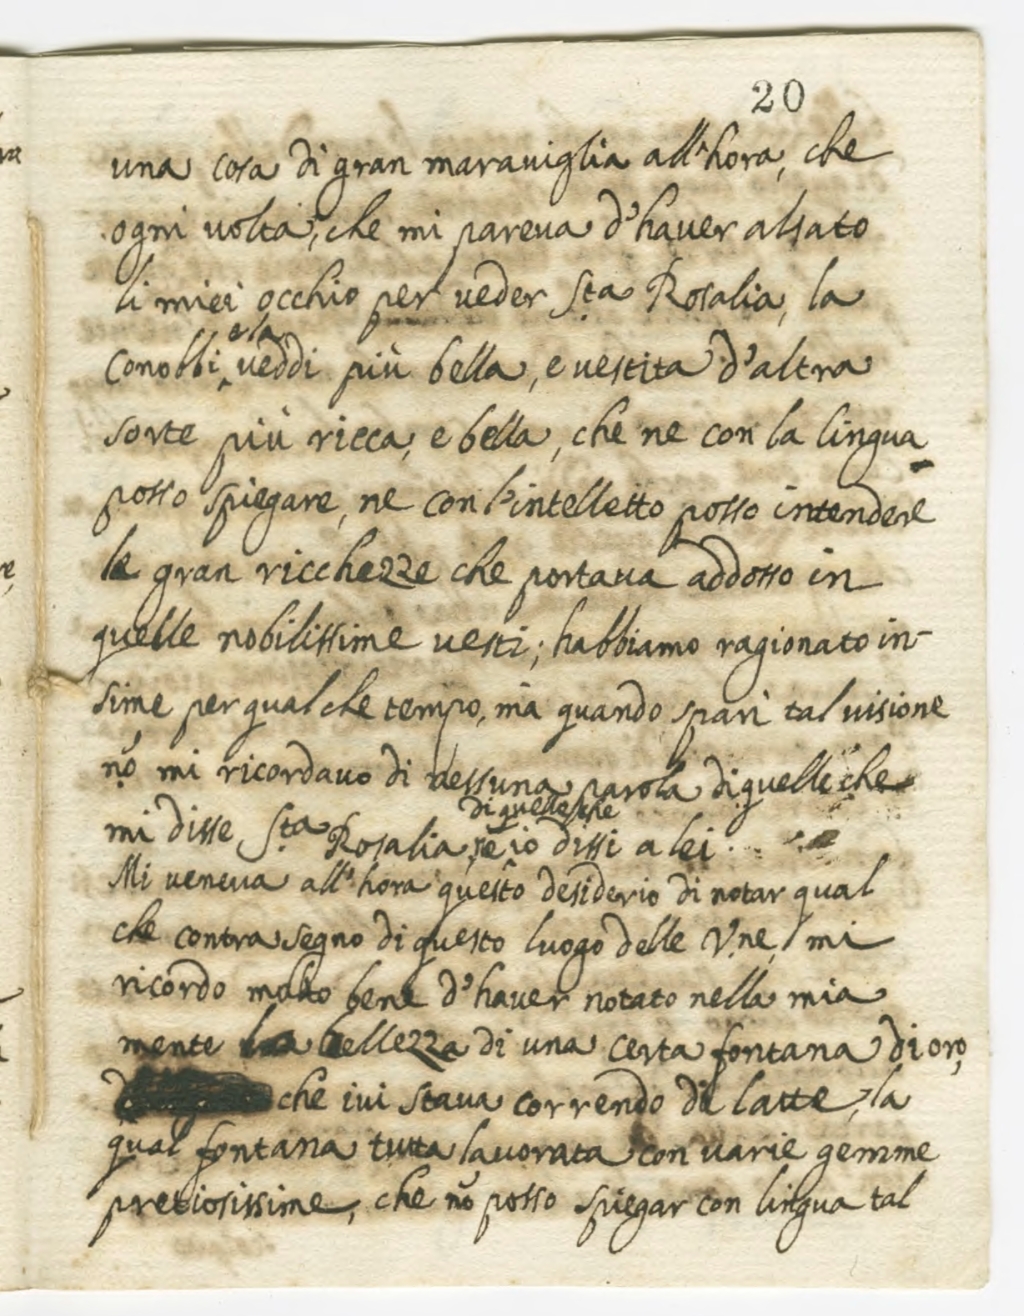 20
una cosa di gran marauiglia all'hora, che
ogni uolta, che mi pareua d'hauer alsato
li miei occhio per ueder S.ta Rosalia, la
conobbi, e la ueddi più bella, e uestita d'altra
sorte più ricca, e bella, che ne con la lingua
posso spiegare, ne con l'intelletto posso intendere
le gran ricchezze che portaua addosso in
quelle nobilissime uesti; habbiamo ragionato in-
sime per qual che tempo, mà quando sparì tal uisione
nõ mi ricordauo di nessuna parola di quelle che
mi disse S.ta Rosalia, nè di quelle che io dissi a lei.
Mi veneua all'hora questo desiderio di notar qual
che contrasegno di questo luogo delle V.ne, mi
ricordo molto bene d'hauer notato nella mia
mente la bellezza di una certa fontana di oro,
che iui staua correndo di latte, la
qual fontana tutta lauorata con uarie gemme
pretiosissime, che nõ posso spiegar con lingua tal